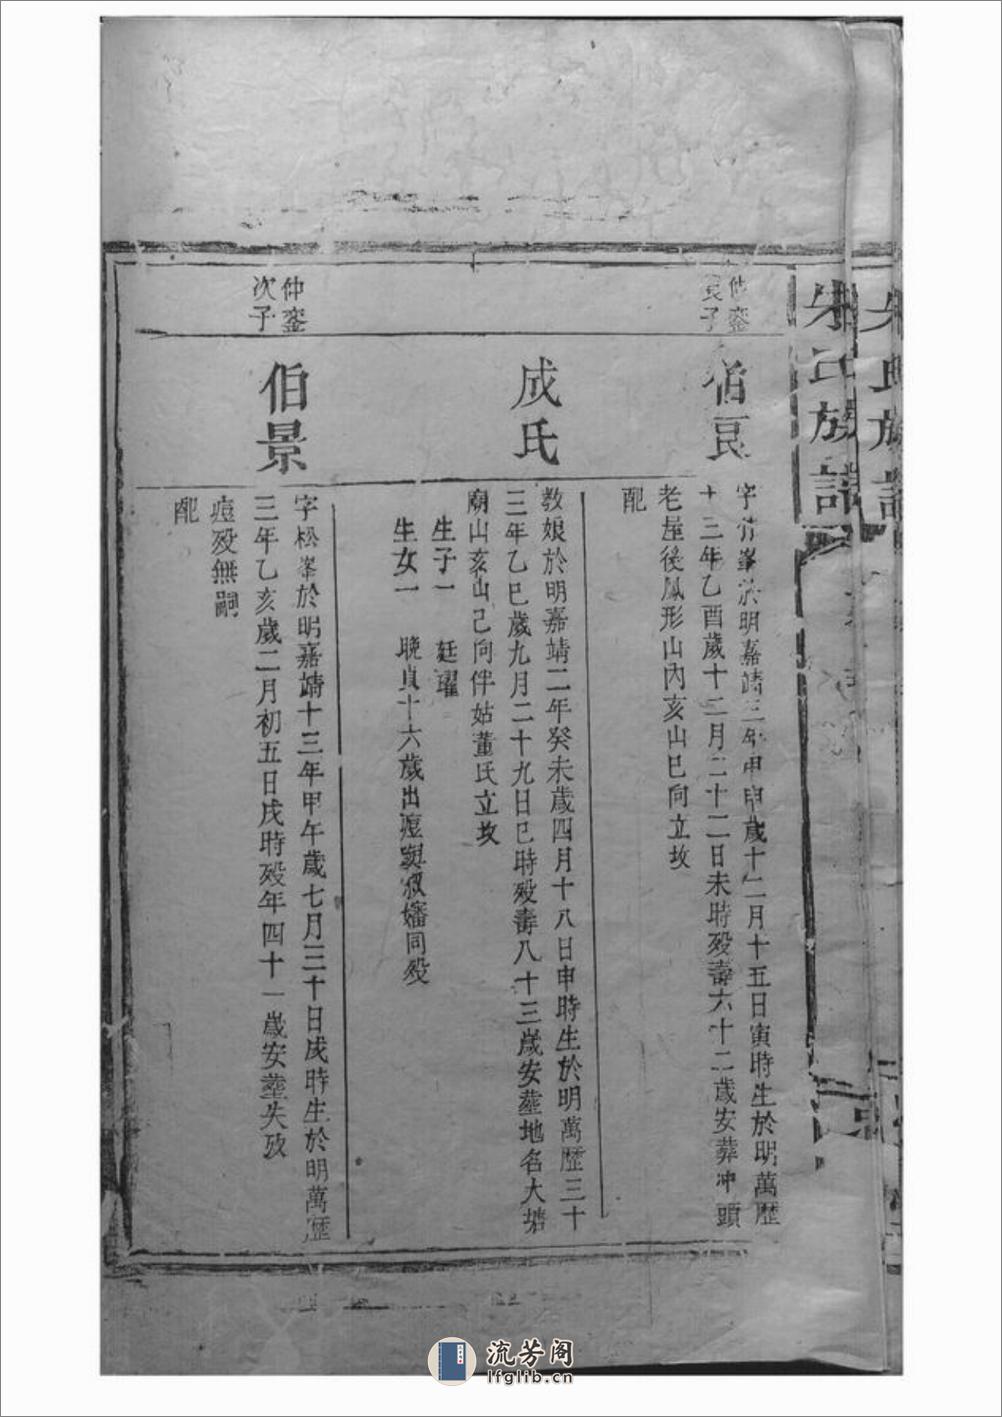 朱氏族譜
朱氏族譜
仲鑾
長子
伯良
字竹峯於明嘉靖三年甲申歲十二月十五日寅時生於明萬歷
十三年乙酉歲十二月二十二日未時殁壽六十二歲安葬冲頭
老屋後鳳形山內亥山巳向立坟
配
成氏
教娘於明嘉靖二年癸未歲四月十八日申時生於明萬歷三十
三年乙巳歲九月二十九日巳時殁壽八十三歲安塟地名大塘
廟山亥山己向伴姑董氏立坟
生子一 廷瓘
生女一 晚貞十六歲出痘與叔嬸同殁
仲鑾
次子
伯景
字松峯於明嘉靖十三年甲午歲七月三十日戌時生於明萬歷
三年乙亥歲二月初五日戌時殁年四十一歲安塟失攷
痘殁無嗣
配
流芳阁
lfglib.cn